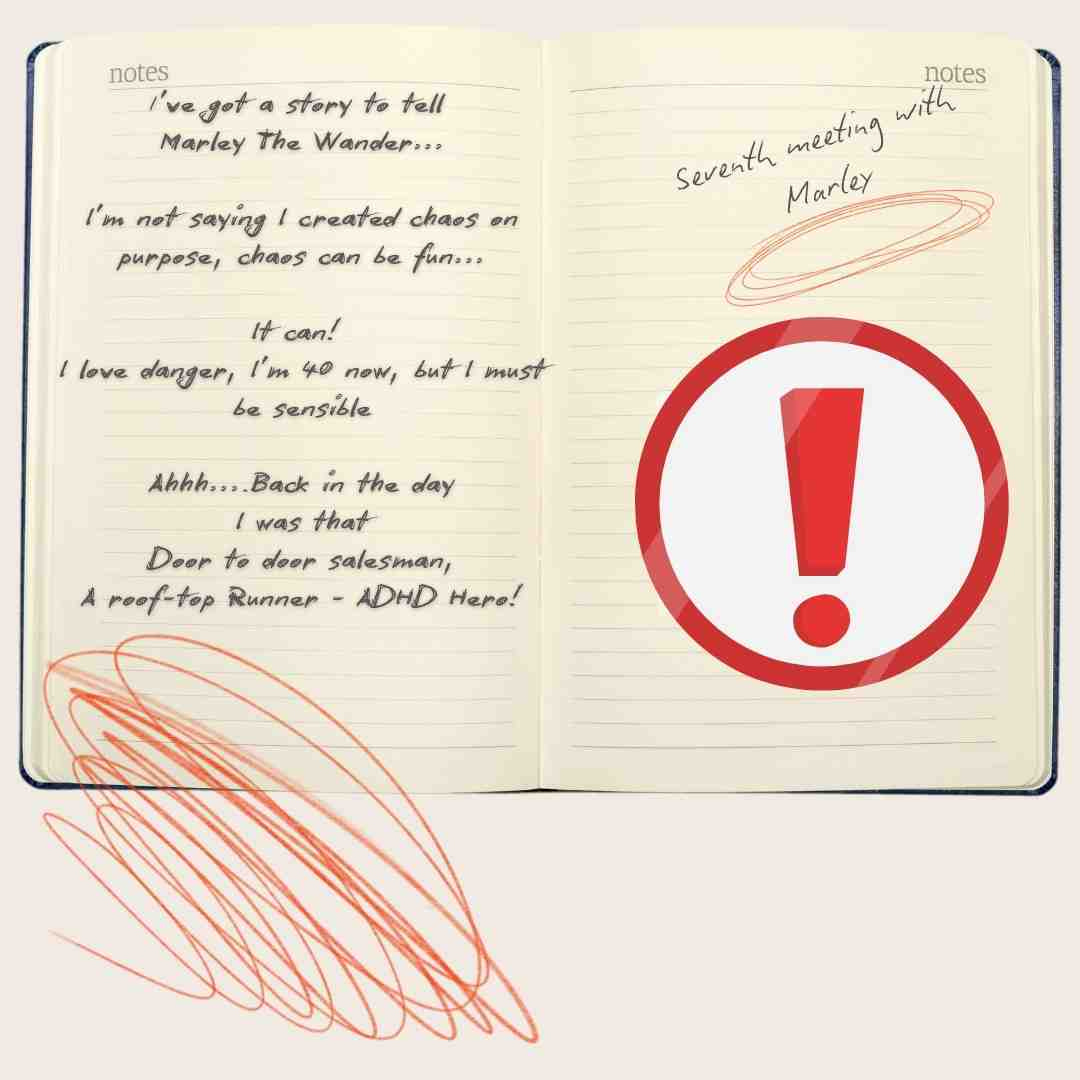 notes
I've got a story to tell
Marley The Wander...
I'm not saying I created chaos on
purpose, chaos can be fun...
It can!
I love danger, I'm 40 now, but I must
be sensible
Ahhh....Back in the day
I was that
Door to door salesman,
A roof-top Runner - ADHD Hero!
notes
Seventh meeting with
Marley
!